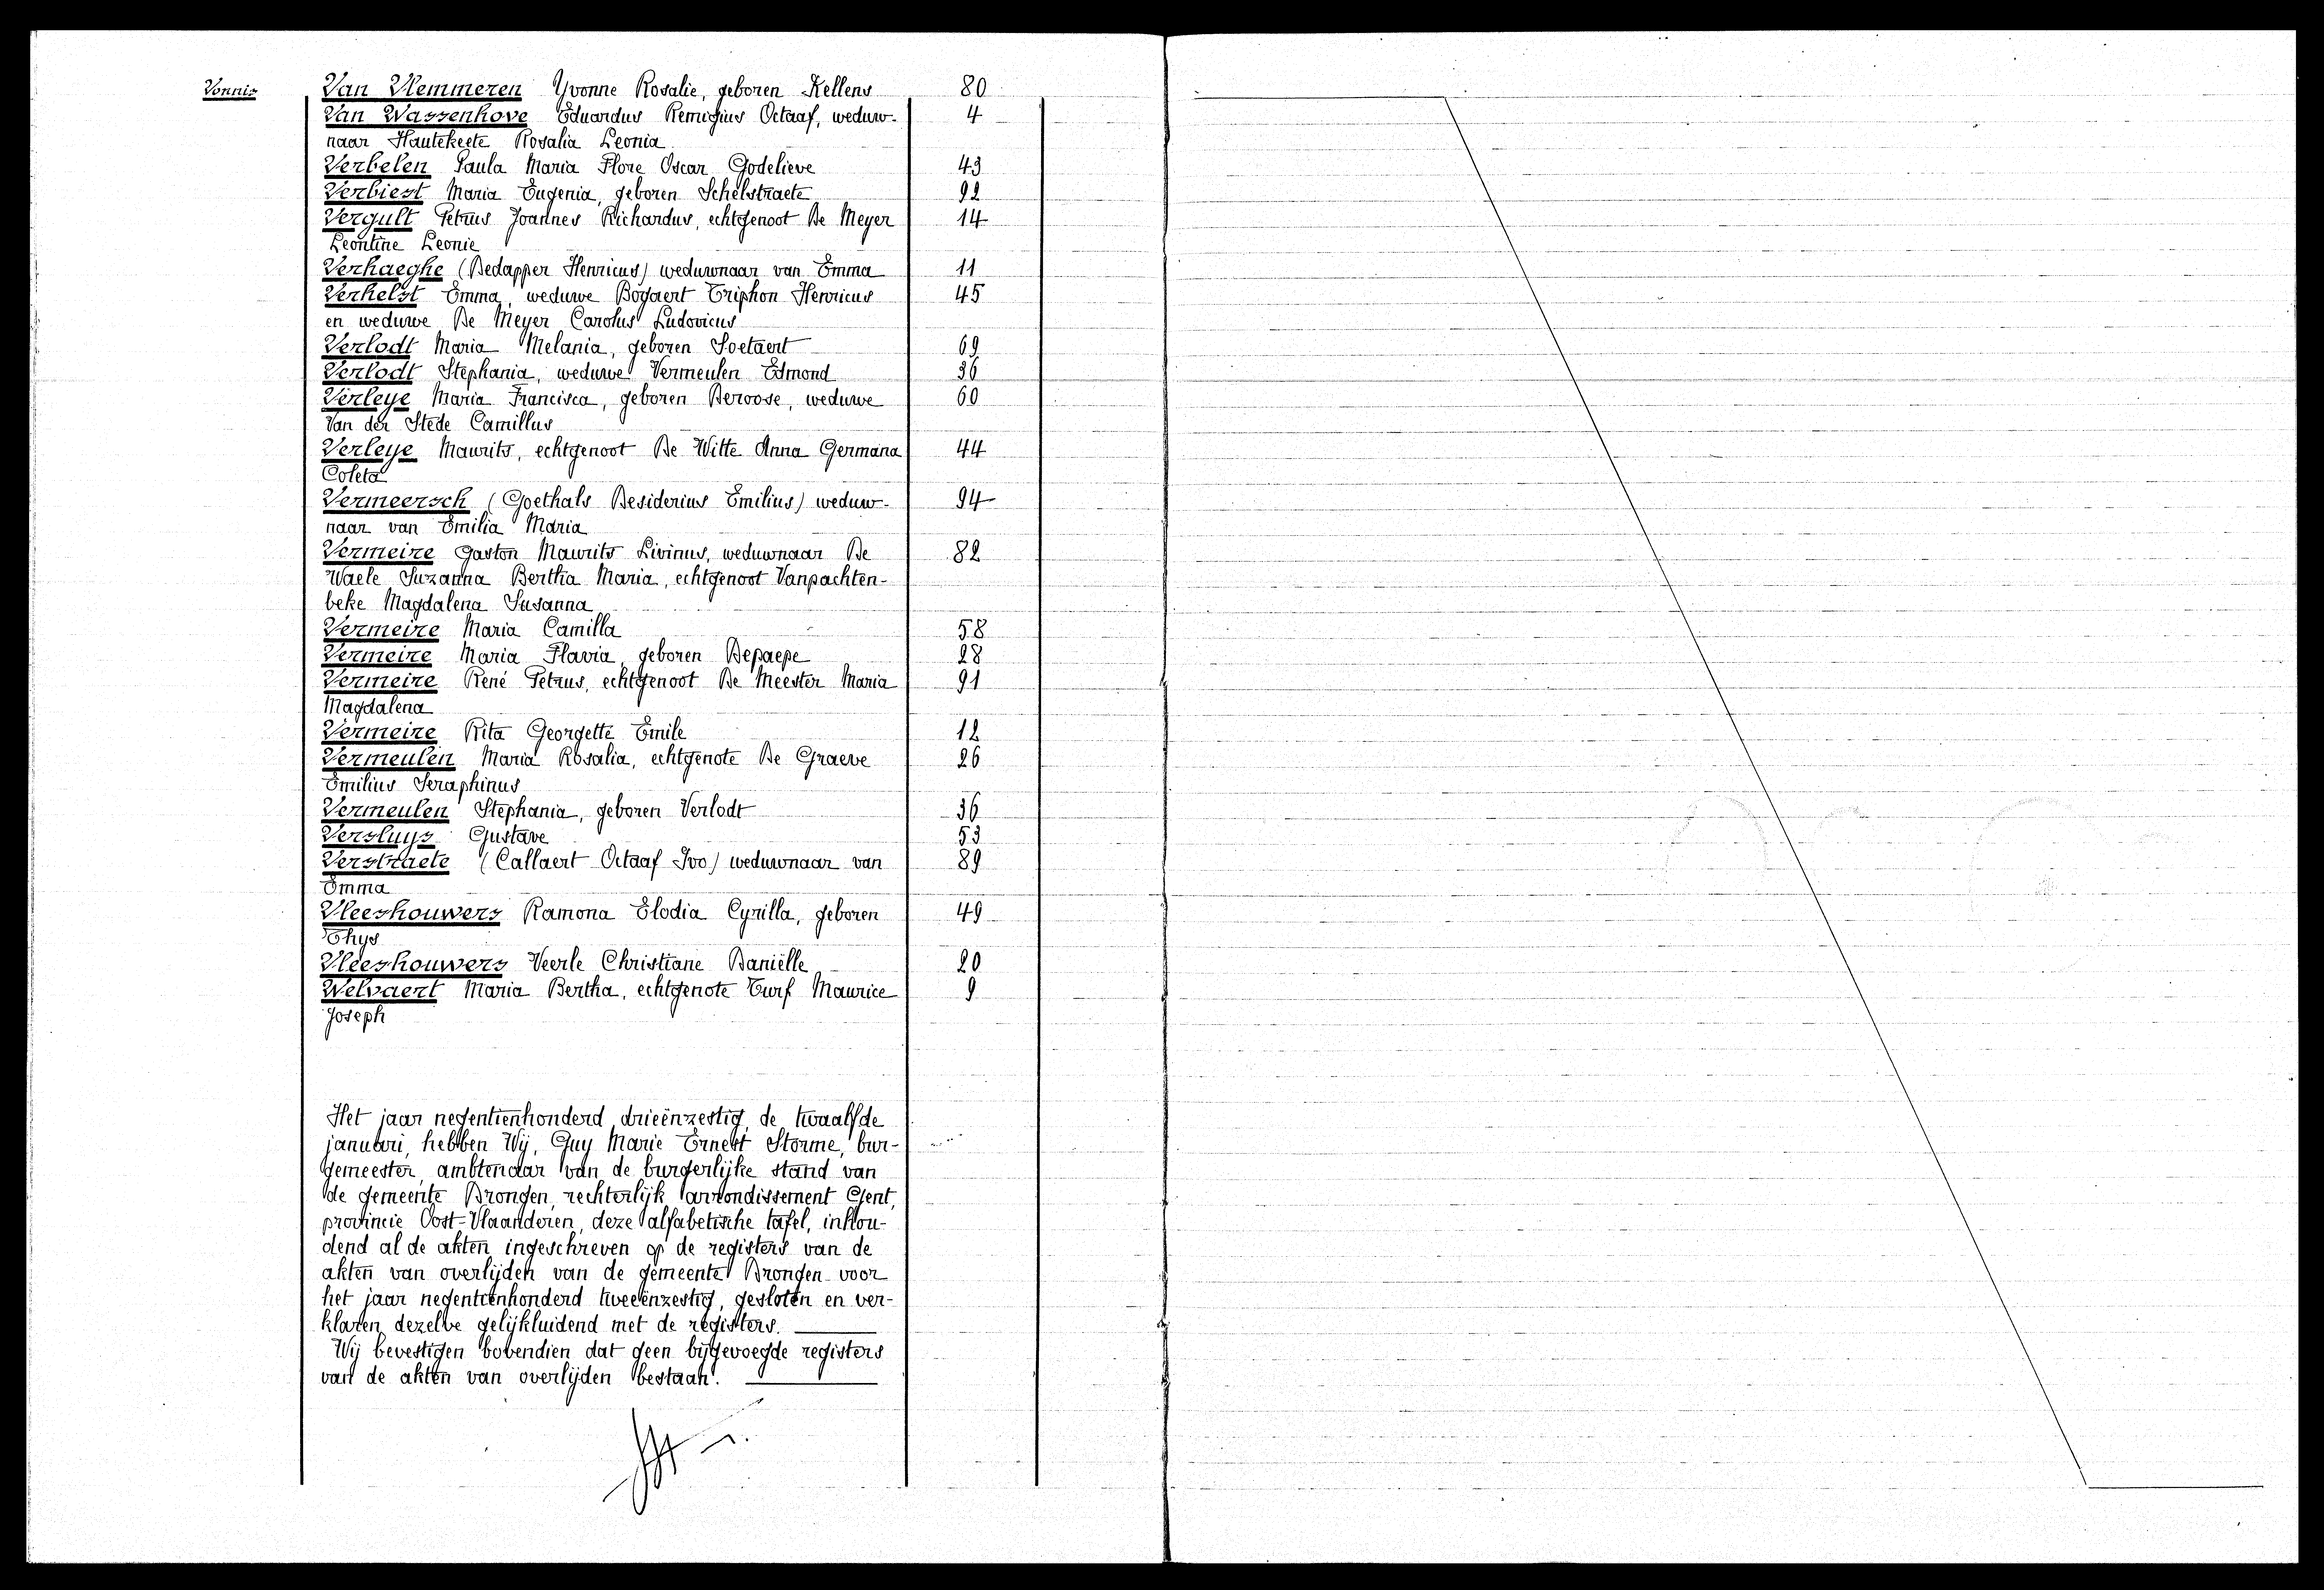 Vonnis Van Vlemmeren Yvonne Rosalie, geboren Kellens 80
Van Wassenhove Eduardus Remigius Octaaf, weduw- 4
naar Hautekeete Rosalia Leonia
Verbelen Paula Maria Flore Oscar Godelieve 43
Verbiest Maria Eugenia, geboren Schelstraete 92
Vergult Petrus Joannes Richardus, echtgenoot De Meyer 14
Leontine Leonie
Verhaeghe (Dedapper Henricus) weduwnaar van Emma 11
Verhelst Emma, weduwe Bogaert Triphon Henricus 45
en weduwe De Meyer Carolus Ludovicus
Verlodt Maria Melania, geboren Soetaert 69
Verlodt Stephania, weduwe Vermeulen Edmond 36
Verleye Maria Francisca, geboren Deroose, weduwe 60
Van der Stede Camillus
Verleye Maurits, echtgenoot De Witte Anna Germana 44
Coleta
Vermeersch (Goethals Desiderius Emilius) weduw- 94
naar van Emilia Maria
Vermeire Gaston Maurits Livinus, weduwnaar De 82
Waele Suzanna Bertha Maria, echtgenoot Vanpachten-
beke Magdalena Susanna
Vermeire Maria Camilla 58
Vermeire Maria Flavia, geboren Depaepe 28
Vermeire René Petrus, echtgenoot De Meester Maria 91
Magdalena
Vermeire Rita Georgette Emile 12
Vermeulen Maria Rosalia, echtgenote De Graeve 26
Emilius Seraphinus
Vermeulen Stephania, geboren Verlodt 36
Versluys Gustave 53
Verstraete (Callaert Octaaf Ivo) weduwnaar van 89
Emma
Vleeshouwers Ramona Elodia Cyrilla, geboren 49
Thys
Vleeshouwers Veerle Christiane Daniëlle 20
Welvaert Maria Bertha, echtgenote Turf Maurice 9
Joseph
Het jaar negentienhonderd drieënzestig, de twaalfde
januari, hebben Wij, Guy Marie Ernest Storme, bur-
gemeester, ambtenaar van de burgerlijke stand van
de gemeente Drongen, rechterlijk arrondissement Gent,
provincie Oost-Vlaanderen, deze alfabetische tafel, inhou-
dend al de akten ingeschreven op de registers van de
akten van overlijden van de gemeente Drongen voor
het jaar negentienhonderd tweeënzestig, gesloten en ver-
klaren dezelve gelijkluidend met de registers.
Wij bevestigen bovendien dat geen bijgevoegde registers
van de akten van overlijden bestaan.